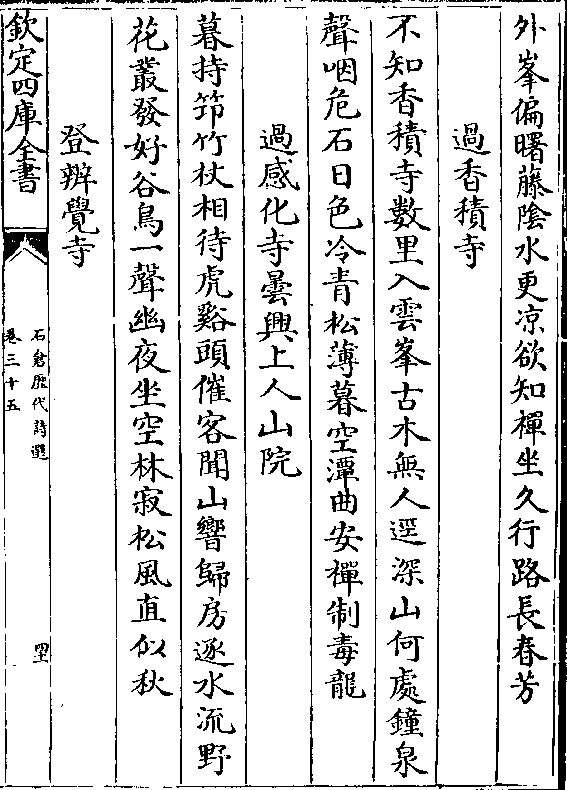 外峯偏曙藤陰水更凉欲知禪坐久行路長春芳
過香積寺
不知香積寺數里入雲峯古木無人逕深山何處鐘泉
聲咽危石日色冷青松薄暮空潭曲安禪制毒龍
過感化寺曇興上人山院
暮持笻竹杖相待虎谿頭催客聞山響歸房逐水流野
花叢發好谷鳥一聲幽夜坐空林寂松風直似秋
登辨覺寺
欽定四庫全書
石倉歴代詩選
卷三十五